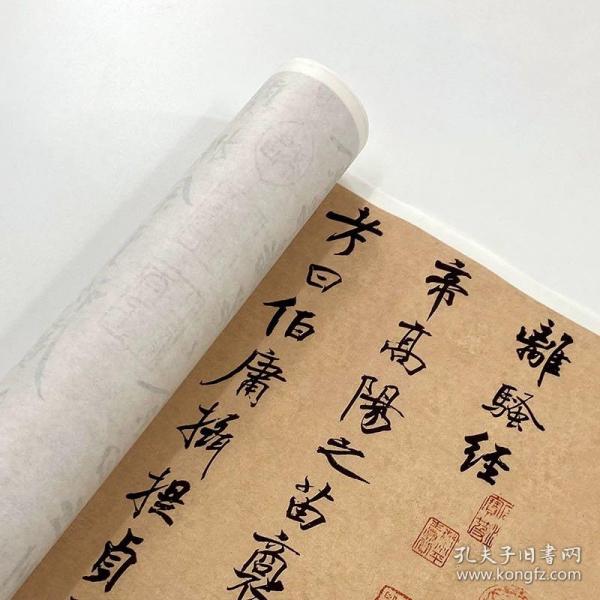 離騷經
帝高陽之苗裔
考曰伯庸攝提貞
孔夫子旧书网
www.kongfz.com